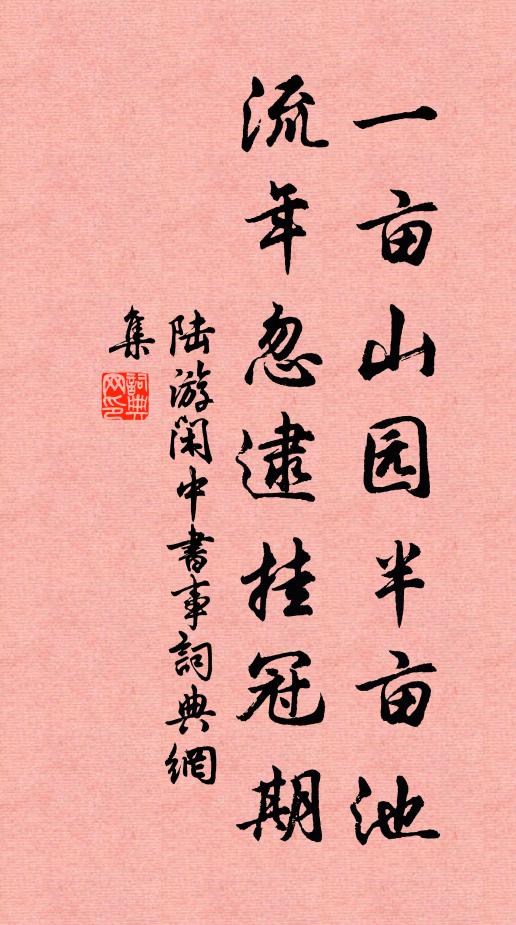 一亩山园半亩池
流年忽逮挂冠期
陆游闲中书事詞典網
集
詞典
网印